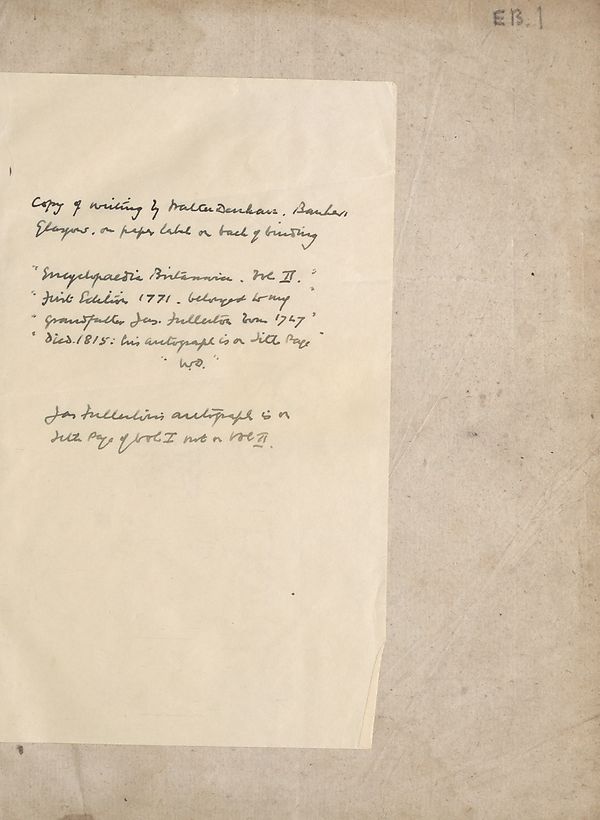 EB. 1
Copy of writing by Walter Denham. Banker,
Glasgow. on paper label on back of binding
" Encyclopaedia Britannica. Vol II. "
" First Edition 1771. belonged to my "
" grandfather Jas. Fullerton born 1747 "
" Died. 1815: his autograph is on Title Page "
" W.D. "
Jas Fullerton's autograph is on
Title Page of Vol I not on Vol II.